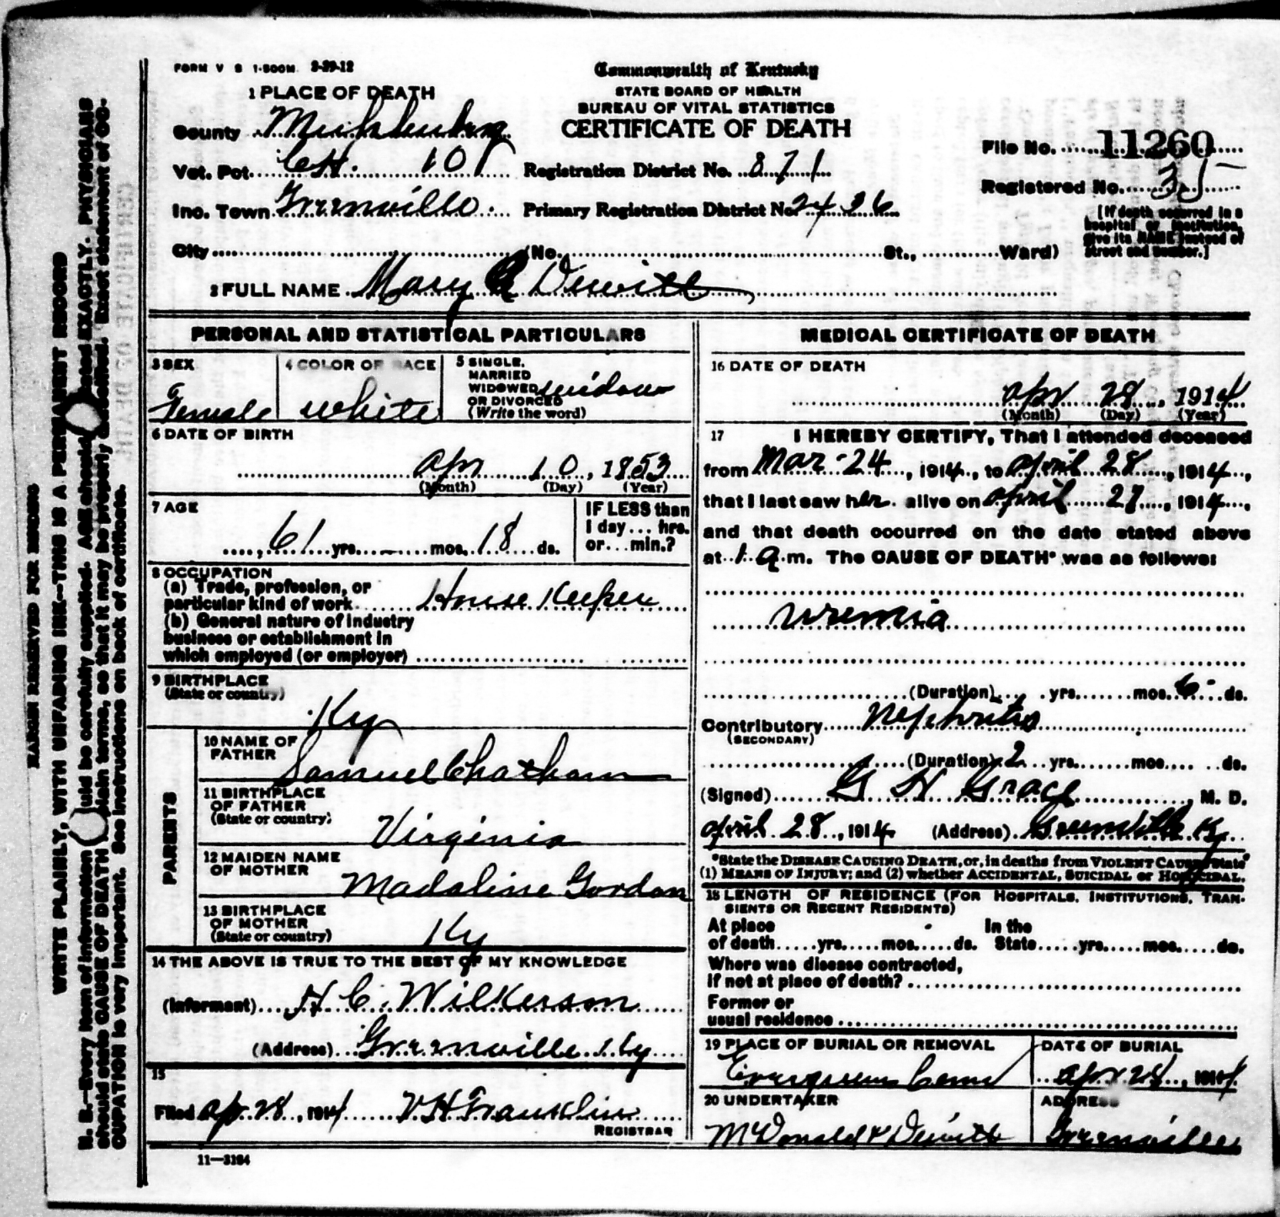 FORM V S 1-500M 3-29-12
Commonwealth of Kentucky
STATE BOARD OF HEALTH
BUREAU OF VITAL STATISTICS
CERTIFICATE OF DEATH
1 PLACE OF DEATH
County Muhlenberg
Vot. Pct. CH. 101 Registration District No. 871
Inc. Town Greenville. Primary Registration District No. 2426
City (No. St., Ward)
File No. 11260
Registered No. 35
[If death occurred in a hospital or institution, give its NAME instead of street and number.]
2 FULL NAME Mary Dewitt
PERSONAL AND STATISTICAL PARTICULARS
3 SEX Female
4 COLOR OR RACE white
5 SINGLE, MARRIED WIDOWED OR DIVORCED (Write the word) widow
6 DATE OF BIRTH
Apr 10, 1853
(Month) (Day) (Year)
7 AGE
61 yrs. - mos. 18 ds.
IF LESS than 1 day... hrs. or... min.?
8 OCCUPATION
(a) Trade, profession, or particular kind of work House Keeper
(b) General nature of industry business or establishment in which employed (or employer)
9 BIRTHPLACE
(State or country)
Ky
PARENTS
10 NAME OF FATHER
Samuel Chatham
11 BIRTHPLACE OF FATHER
(State or country)
Virginia
12 MAIDEN NAME OF MOTHER Madaline Gordon
13 BIRTHPLACE OF MOTHER
(State or country) Ky
14 THE ABOVE IS TRUE TO THE BEST OF MY KNOWLEDGE
(Informant) H. C. Wilkerson
(Address) Greenville Ky
15
Filed Apr 28, 1914 V H Franklin
REGISTRAR
11-3184
MEDICAL CERTIFICATE OF DEATH
16 DATE OF DEATH
Apr 28, 1914
(Month) (Day) (Year)
17 I HEREBY CERTIFY, That I attended deceased
from Mar 24, 1914, to April 28, 1914,
that I last saw her alive on April 27, 1914,
and that death occurred on the date stated above
at 1 a.m. The CAUSE OF DEATH* was as follows:
uremia
(Duration) yrs. mos. 6 ds.
Contributory Nephritis
(SECONDARY)
(Duration) 2 yrs. mos. ds.
(Signed) G H Grace, M. D.
April 28, 1914 (Address) Greenville Ky.
*State the DISEASE CAUSING DEATH, or, in deaths from VIOLENT CAUSES, state
(1) MEANS OF INJURY; and (2) whether ACCIDENTAL, SUICIDAL or HOMICIDAL.
18 LENGTH OF RESIDENCE (FOR HOSPITALS, INSTITUTIONS, TRANSIENTS OR RECENT RESIDENTS)
At place of death yrs. mos. ds. In the State yrs. mos. ds.
Where was disease contracted,
If not at place of death?
Former or
usual residence
19 PLACE OF BURIAL OR REMOVAL
Evergreen Cem
DATE OF BURIAL
Apr 28, 1914
20 UNDERTAKER
McDonald & Dewitt
ADDRESS
Greenville
MARGIN RESERVED FOR BINDING
WRITE PLAINLY, WITH UNFADING INK—THIS IS A PERMANENT RECORD
N. B.—Every item of information should be carefully supplied. AGE should be stated EXACTLY. PHYSICIANS
should state CAUSE OF DEATH in plain terms, so that it may be properly classified. Exact statement of OC-
CUPATION is very important. See instructions on back of certificate.